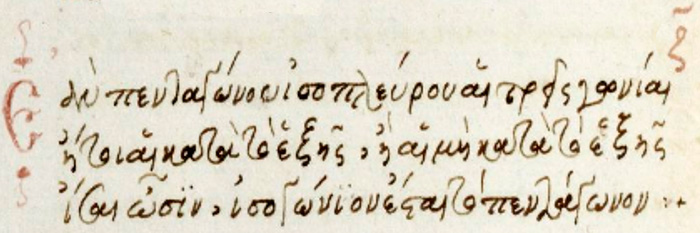 ζ
Ἐὰν πενταγώνου ἰσοπλεύρου αἱ τρεῖς γωνίαι
ἤτοι αἱ κατὰ τὸ ἑξῆς, ἢ αἱ μὴ κατὰ τὸ ἑξῆς
ἴσαι ὦσϊν, ἰσογώνϊον ἔσται τὸ πεντάγωνον :+